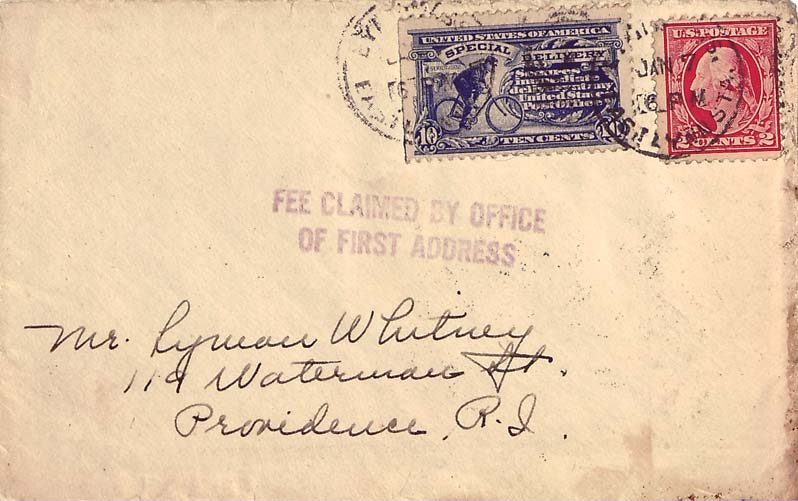 UNITED STATES OF AMERICA
SPECIAL DELIVERY
Secures
immediate
delivery at any
United States
Post Office
10
TEN CENTS
10
U.S. POSTAGE
2 CENTS 2
JAN 7
6 PM
FEE CLAIMED BY OFFICE
OF FIRST ADDRESS
Mr. Lyman Whitney
119 Waterman St.
Providence, R.I.